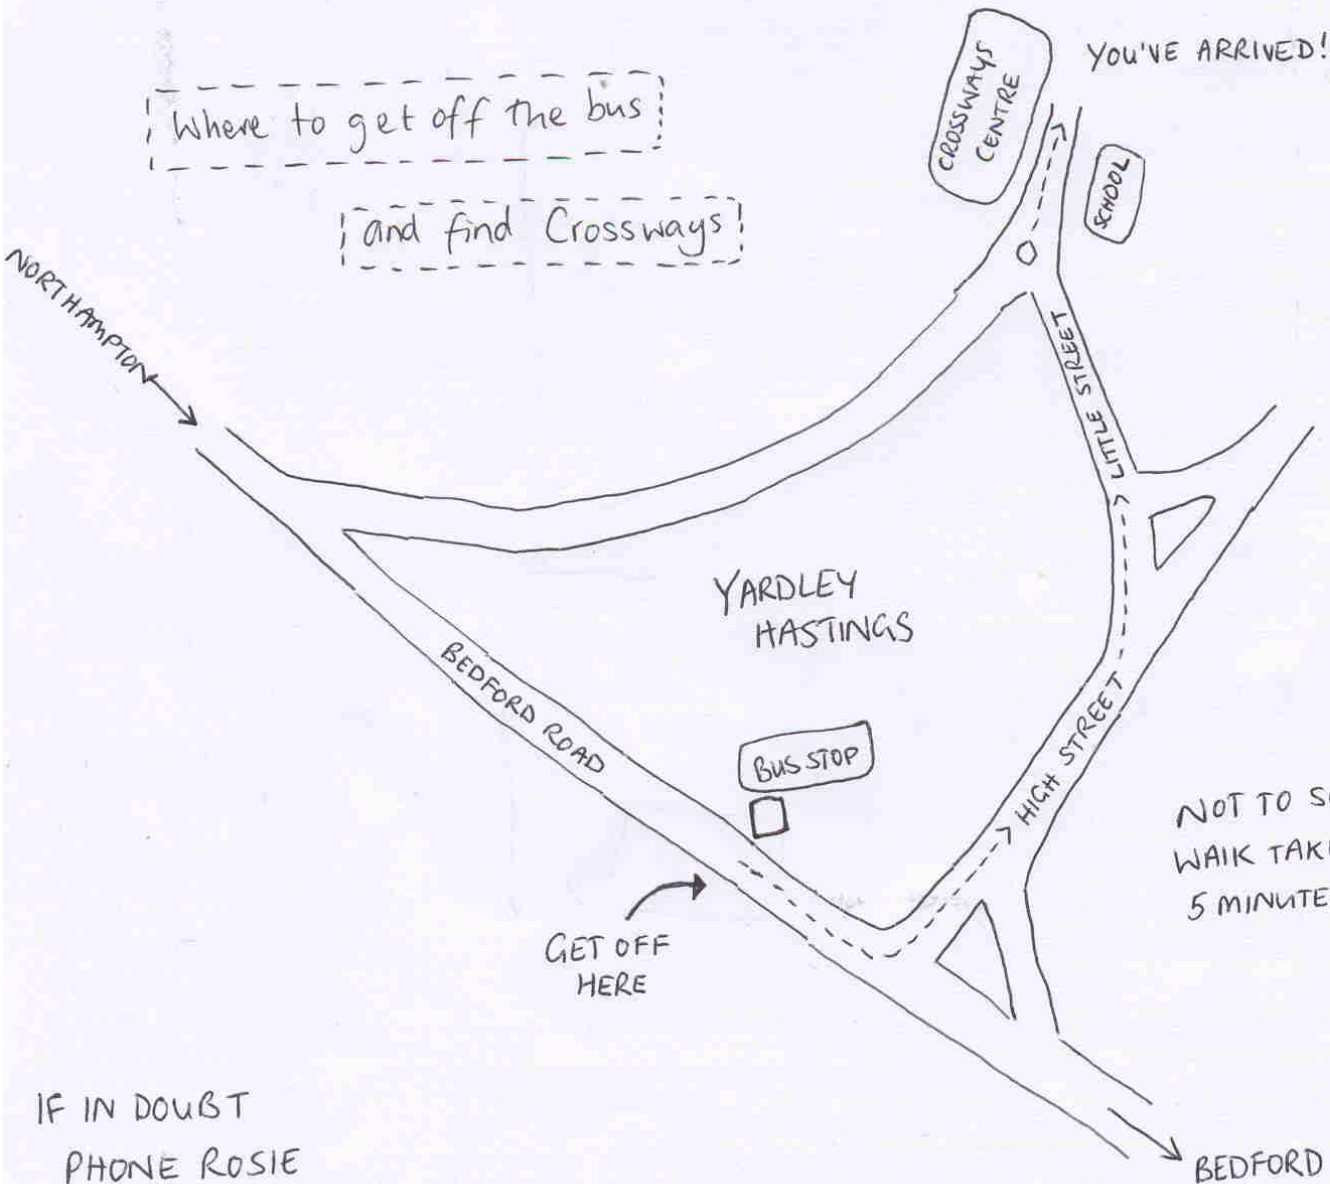 Where to get off the bus
and find Crossways
YOU'VE ARRIVED!
CROSSWAYS
CENTRE
SCHOOL
NORTHAMPTON
LITTLE STREET
YARDLEY
HASTINGS
BEDFORD ROAD
BUS STOP
HIGH STREET
NOT TO
WALK
5
GET OFF
HERE
IF IN DOUBT
PHONE ROSIE
BEDFORD